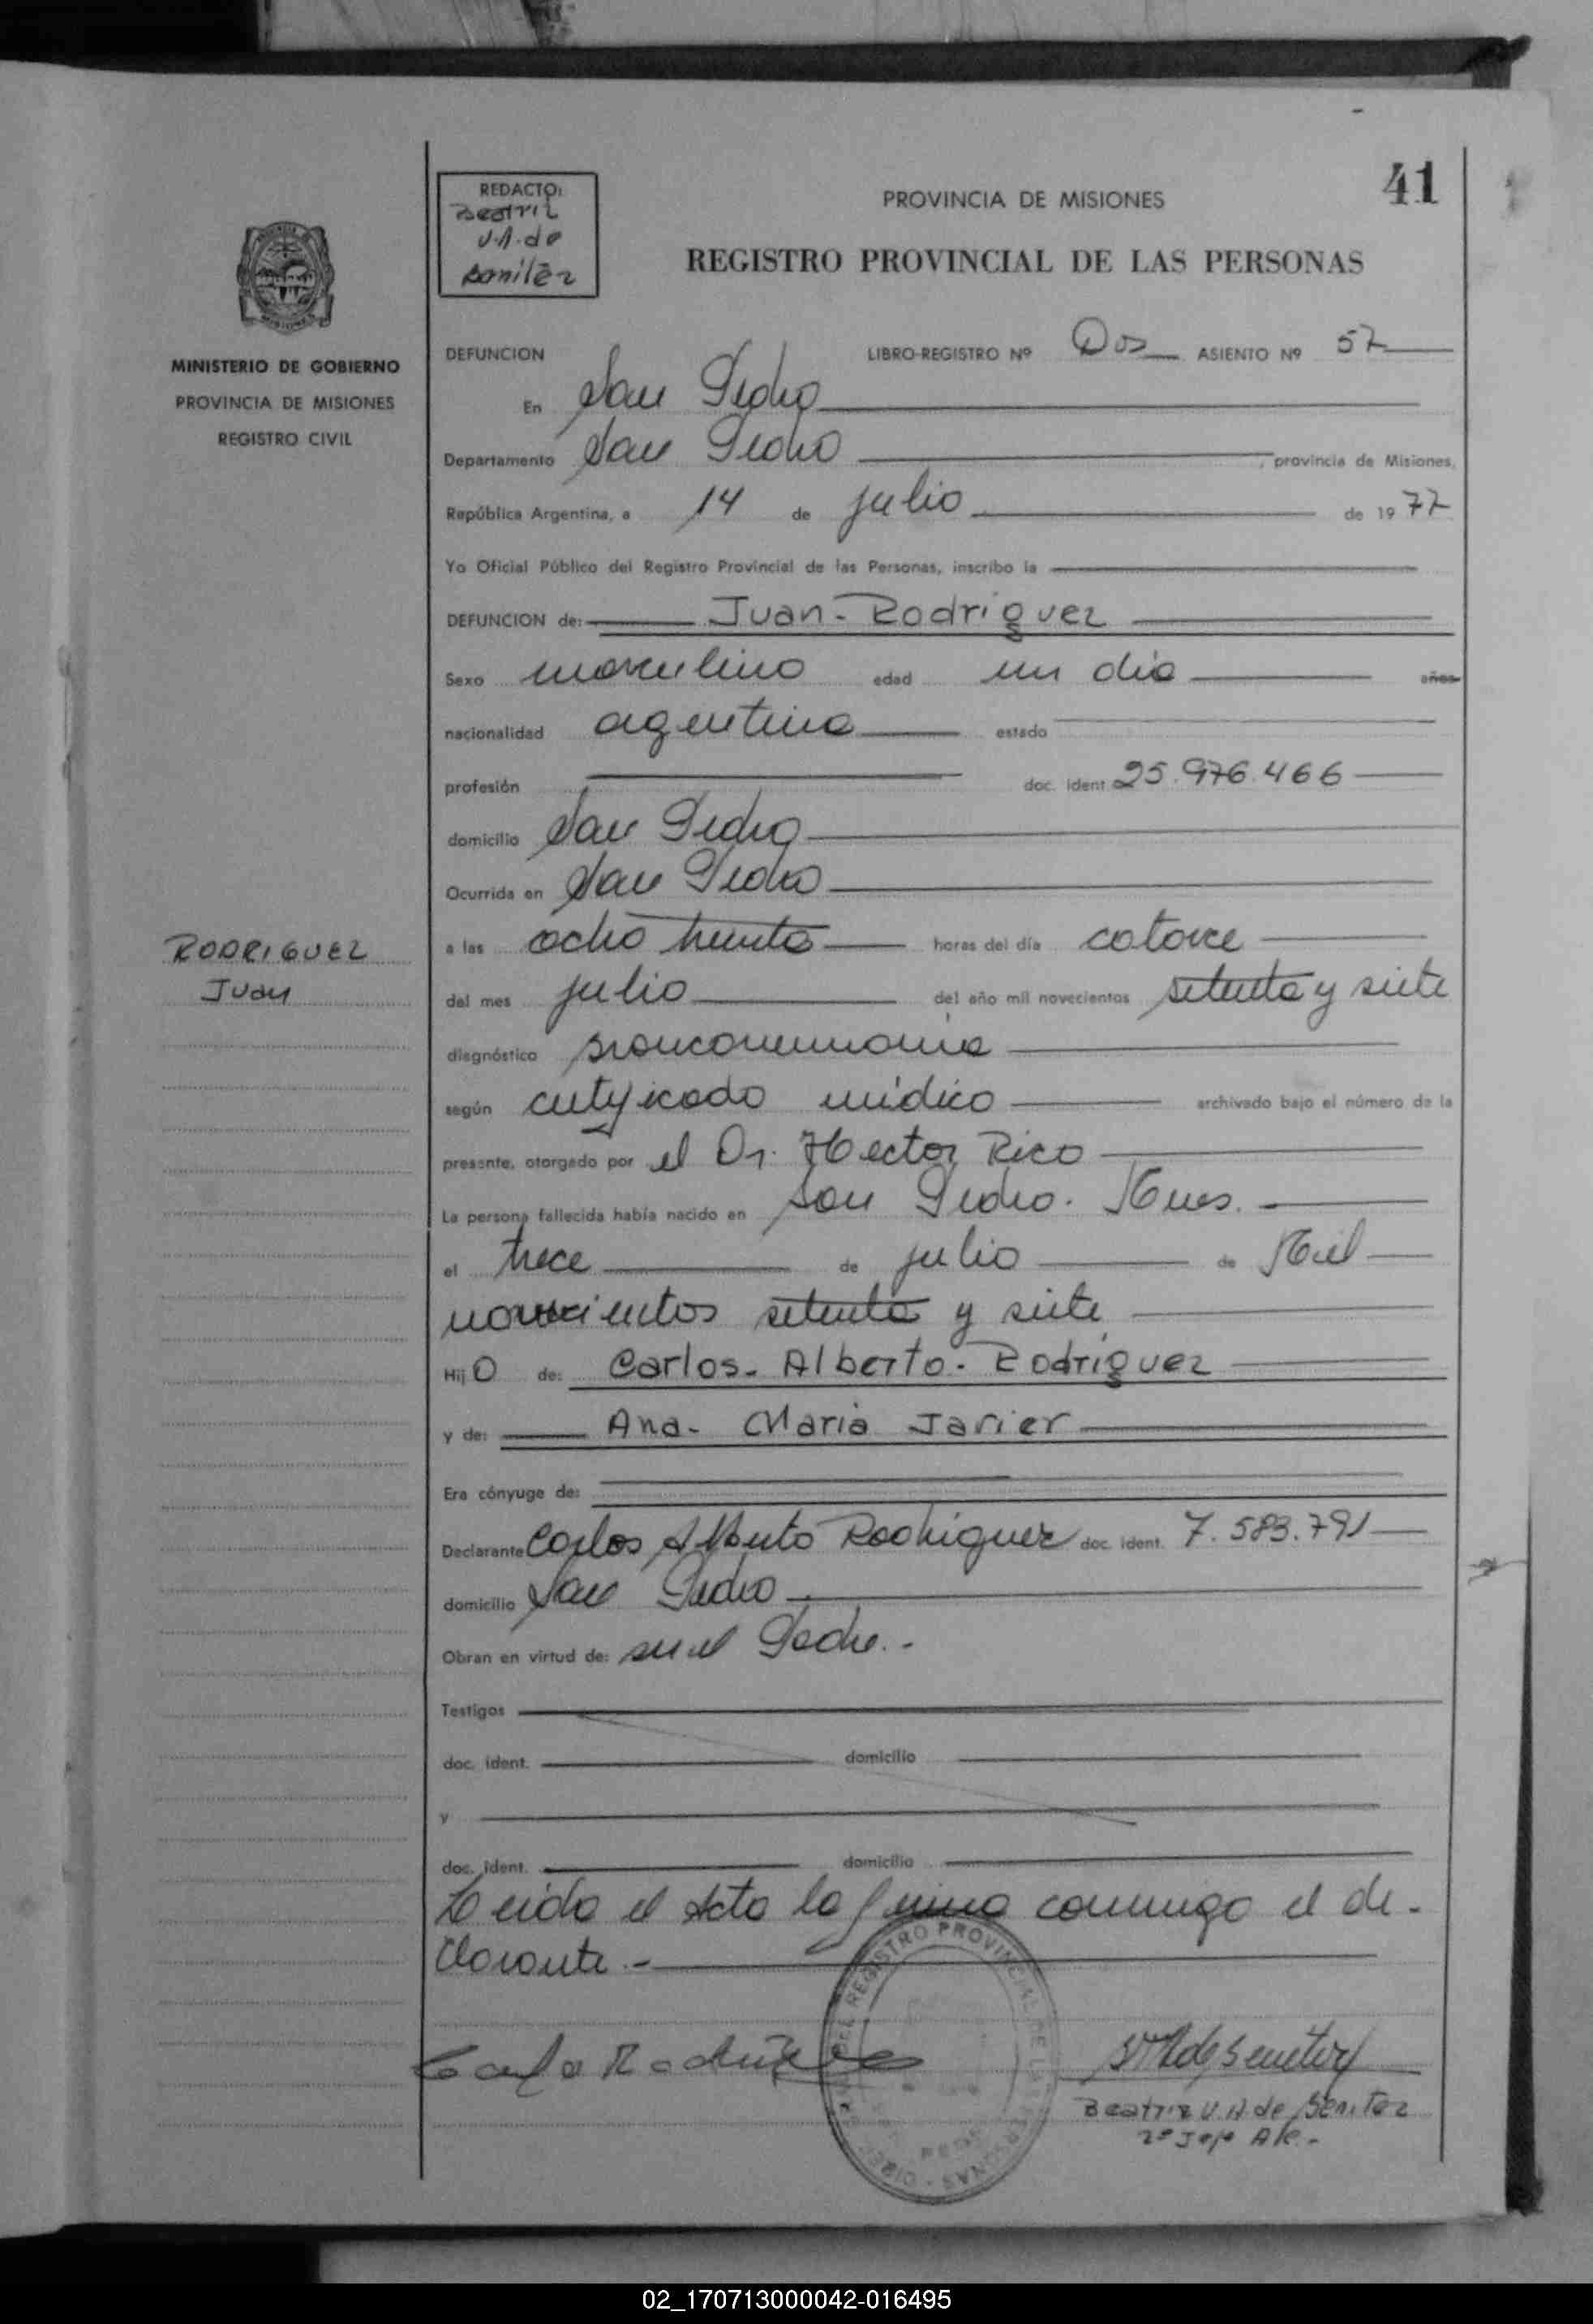 41
REDACTO:
Beatriz
V.A. de
Benitez
PROVINCIA DE MISIONES
REGISTRO PROVINCIAL DE LAS PERSONAS
MINISTERIO DE GOBIERNO
PROVINCIA DE MISIONES
REGISTRO CIVIL
DEFUNCION LIBRO-REGISTRO Nº Dos ASIENTO Nº 57
En San Pedro
Departamento San Pedro , provincia de Misiones,
República Argentina, a 14 de julio de 1977
Yo Oficial Público del Registro Provincial de las Personas, inscribo la
DEFUNCION de: Juan - Rodriguez
Sexo masculino edad un dia años
nacionalidad argentina estado
profesión doc. ident. 25.976.466
domicilio San Pedro
Ocurrida en San Pedro
RODRIGUEZ
Juan
a las ocho treinta horas del día catorce
del mes julio del año mil novecientos setenta y siete
diagnóstico bronconeumonia
según certificado médico archivado bajo el número de la
presente, otorgado por el Dr. Hector Rico
La persona fallecida había nacido en San Pedro. Mnes.
el trece de julio de Mil
novecientos setenta y siete
Hijo de: Carlos - Alberto - Rodriguez
y de: Ana - Maria Javier
Era cónyuge de:
Declarante Carlos Alberto Rodriguez doc. ident. 7.583.791
domicilio San Pedro
Obran en virtud de: ser el Padre.-
Testigos
doc. ident. domicilio
y
doc. ident. domicilio
Leida el Acta la firma conmigo el de-
clarante.-
Carlo Rodriguez
Beatriz V.A de Benitez
2º Jefe
02_170713000042-016495